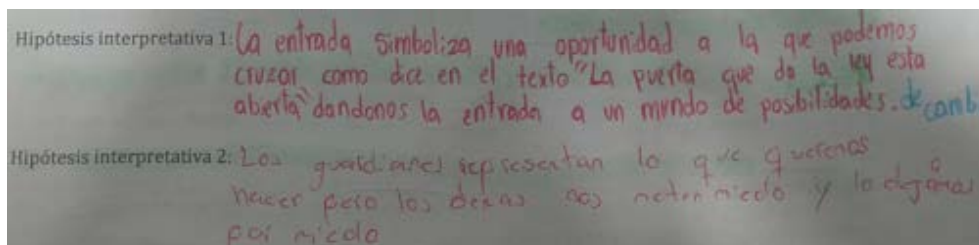 Hipótesis interpretativa 1: La entrada simboliza una oportunidad a la que podemos
cruzar como dice en el texto "La puerta que da la ley esta
abierta" dandonos la entrada a un mundo de posbilidades. de camb
Hipótesis interpretativa 2: Los guardianes representan lo que queremos
hacer pero los demas nos meten miedo y lo dejamos
por miedo